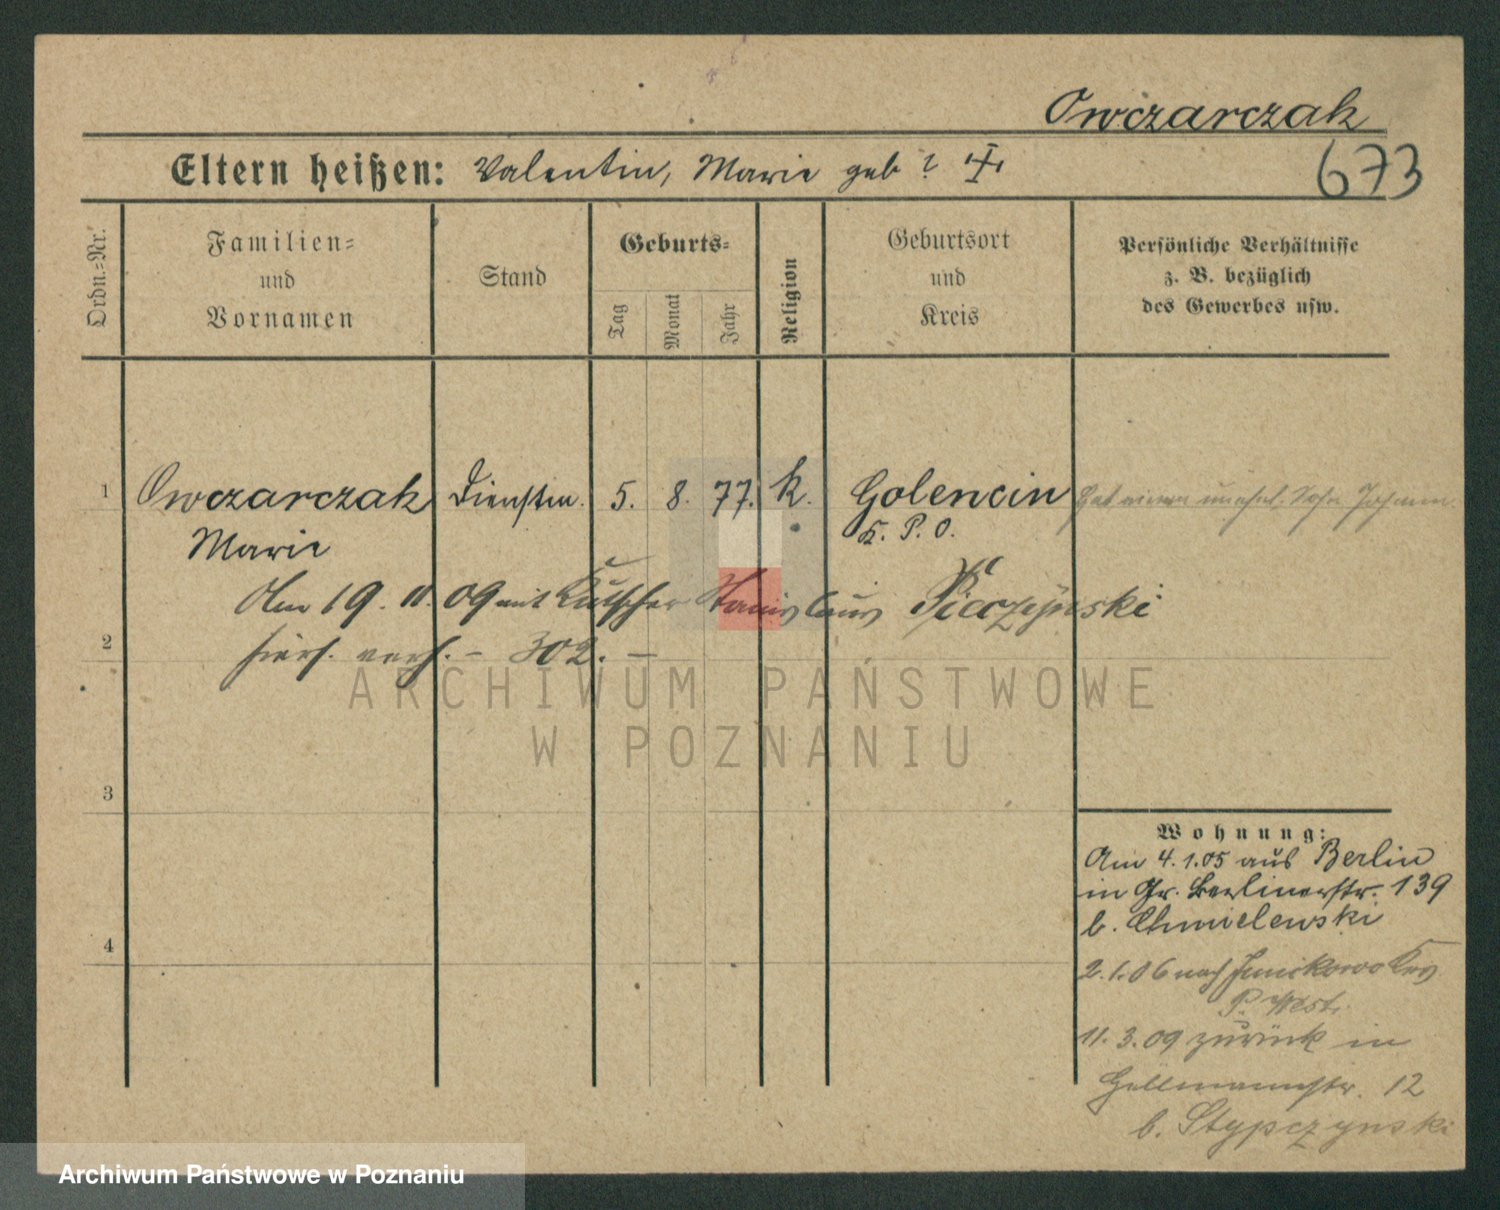 Owczarczak
673
Eltern heißen: Valentin, Marie geb ?
Ordn.=Nr.
Familien=
und
Vornamen
Stand
Geburts=
Tag
Monat
Jahr
Religion
Geburtsort
und
Kreis
Persönliche Verhältnisse
z. B. bezüglich
des Gewerbes usw.
1 Owczarczak Dienstm. 5. 8. 77. k. Golencin Hat einen unehel. Sohn Johann
Marie K. P. O.
Am 19. 11. 09 mit Kutscher Stanislaus
2 hiers. verh. – 302. –
ARCHIWUM PAŃSTWOWE
W POZNANIU
3
Wohnung:
Am 4. 1. 05 aus Berlin
in Gr. Berlinerstr. 139
b. Chmielewski
4
2. 1. 06 nach Junikowo Krs
P. West.
11. 3. 09 zurück in
Hellmannstr. 12
b. Stypczynski
Archiwum Państwowe w Poznaniu